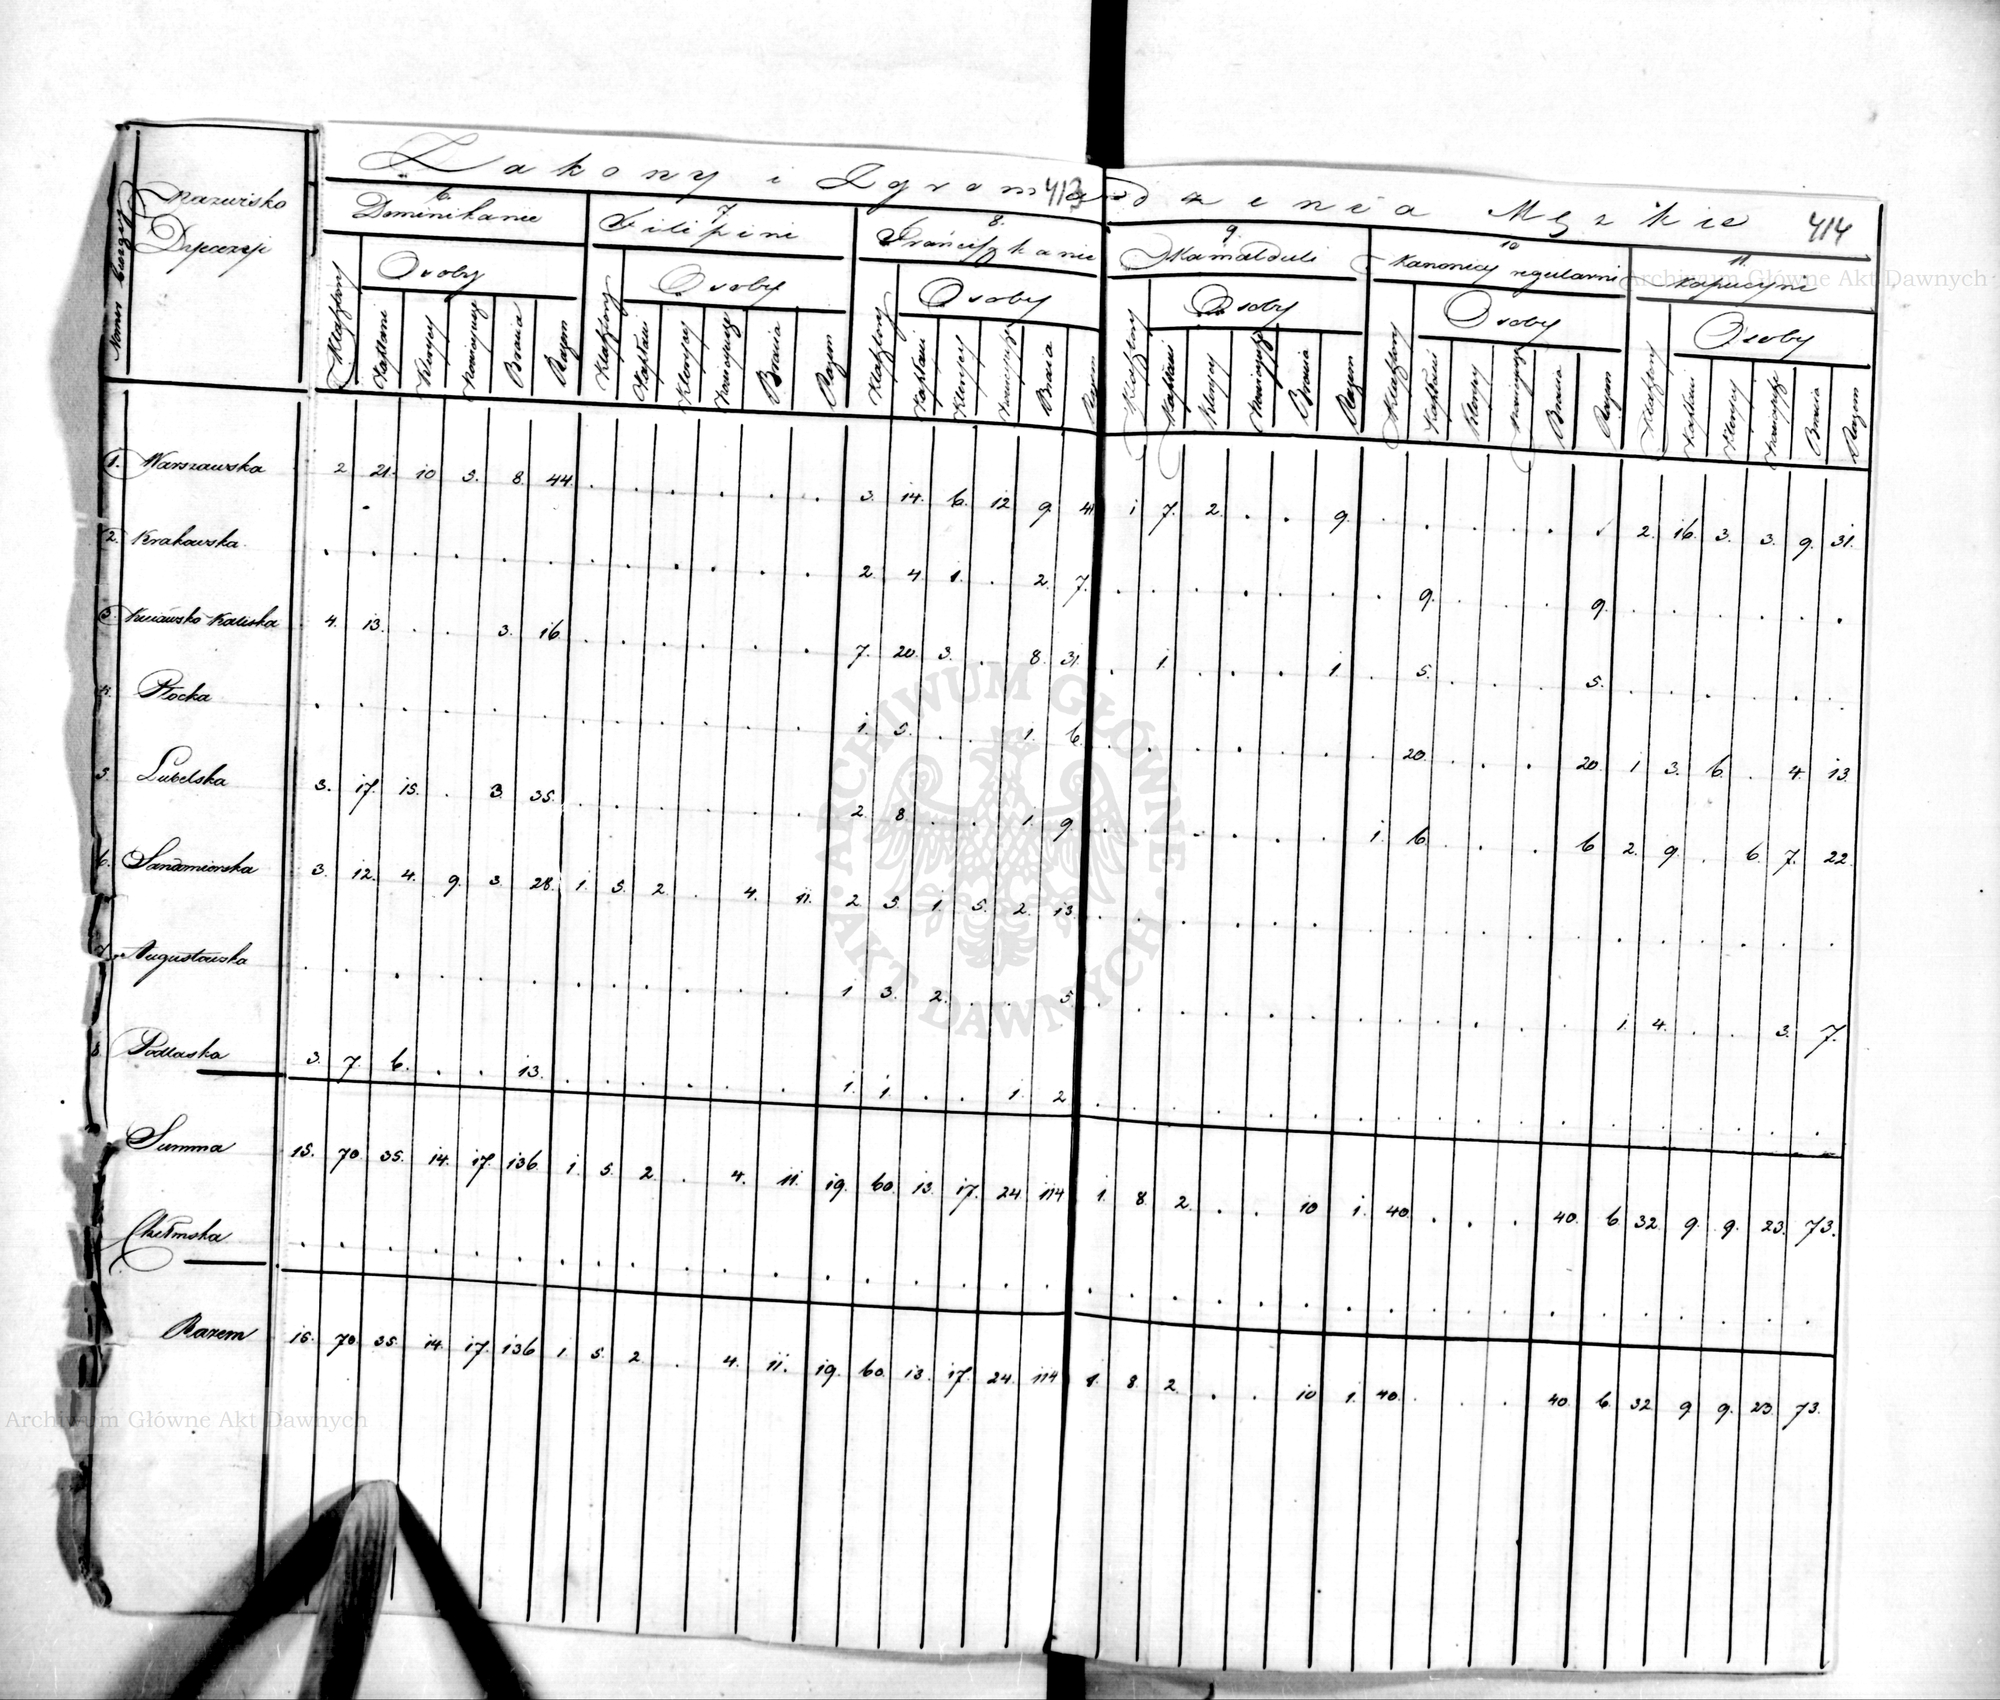 Zakony i Zgromadzenia Męzkie
413
414
Numer bieżący
Nazwisko
Dyecezji
6. Dominikanie
7. Filipini
8. Franciszkanie
9. Kamalduli
10 Kanonicy regularni
11. Kapucyni
Osoby Osoby Osoby Osoby Osoby Osoby
Klasztory Kapłani Klerycy Nowicyusze Bracia Razem Klasztory Kapłani Klerycy Nowicyusze Bracia Razem Klasztory Kapłani Klerycy Nowicyusze Bracia Razem Klasztory Kapłani Klerycy Nowicyusze Bracia Razem Klasztory Kapłani Klerycy Nowicyusze Bracia Razem Klasztory Kapłani Klerycy Nowicyusze Bracia Razem
1. Warszawska 2 21. 10 5. 8. 44. . . . . . . 3. 14. 6. 12 9. 41 1 7. 2. . . 9. . . . . . . 2. 16. 3. 3. 9. 31.
2. Krakowska . . . . . . . . . . . . 2. 4. 1. . 2. 7. . . . . . . . 9. . . . 9. . . . . . .
3. Kuiawsko Kaliska 4. 13. . . 3. 16. . . . . . . 7. 20. 3. . 8. 31. . 1. . . . 1. . 5. . . . 5. . . . . . .
4. Płocka . . . . . . . . . . . . 1. 5. . . 1. 6. . . . . . . . 20. . . . 20. 1 3. 6. . 4. 13.
5. Lubelska 3. 17. 15. . 3. 35. . . . . . . 2. 8. . . 1. 9. . . . . . . 1. 6. . . . 6. 2. 9. . 6. 7. 22.
6. Sandomierska 3. 12. 4. 9. 3. 28. 1. 5. 2. . 4. 11. 2. 5. 1. 5. 2. 13. . . . . . . . . . . . . . . . . . .
7. Augustowska . . . . . . . . . . . . 1 3. 2. . . 5. . . . . . . . . . . . . 1. 4. . . 3. 7.
8. Podlaska 3. 7. 6. . . 13. . . . . . . 1. 1. . . 1. 2. . . . . . . . . . . . . . . . . . .
Summa 15. 70. 35. 14. 17. 136. 1. 5. 2. . 4. 11. 19. 60. 13. 17. 24. 114 1. 8. 2. . . 10 1. 40. . . . 40. 6. 32. 9. 9. 23. 73.
Chełmska . . . . . . . . . . . . . . . . . . . . . . . . . . . . . . . . . . . .
Razem 15. 70. 35. 14. 17. 136 1. 5. 2. . 4. 11. 19. 60. 13. 17. 24. 114 1. 8. 2. . . 10 1. 40. . . . 40. 6. 32 9. 9. 23. 73.
Archiwum Główne Akt Dawnych
ARCHIWUM GŁÓWNE · AKT DAWNYCH ·
Archiwum Główne Akt Dawnych